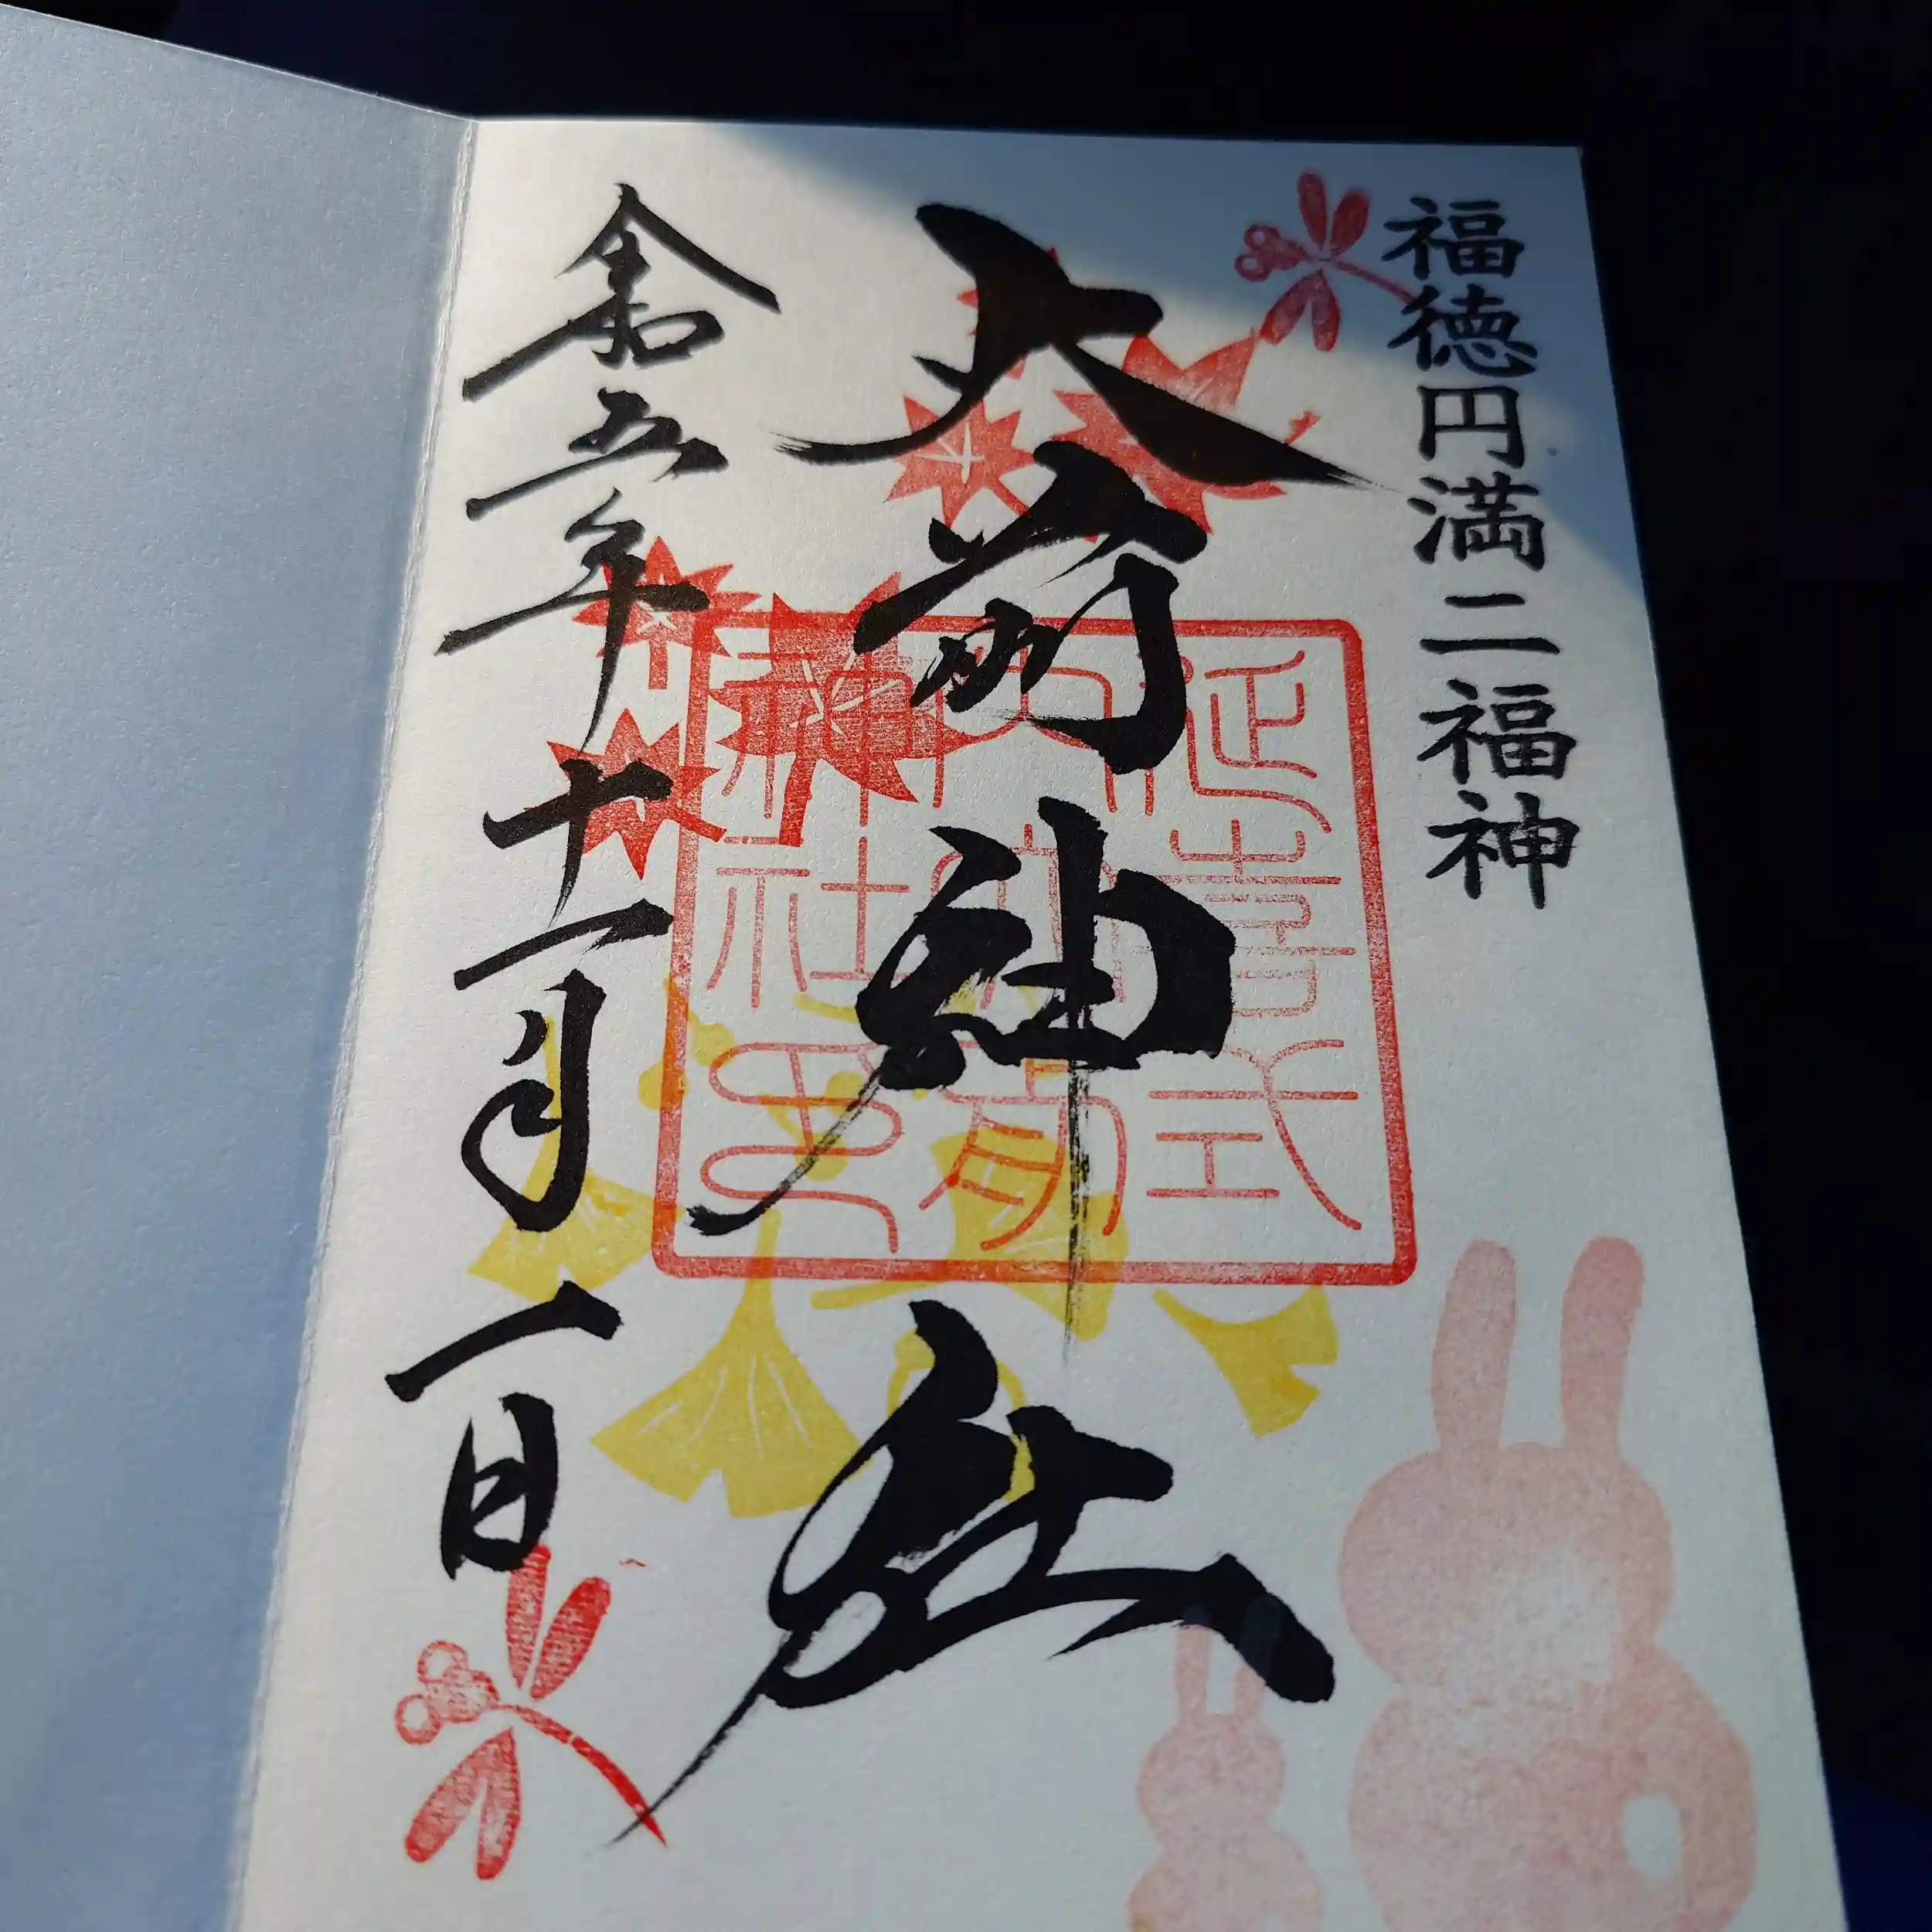 福徳円満二福神
大前神社
延喜式
内大前
神社印
令和五年
十一月一日